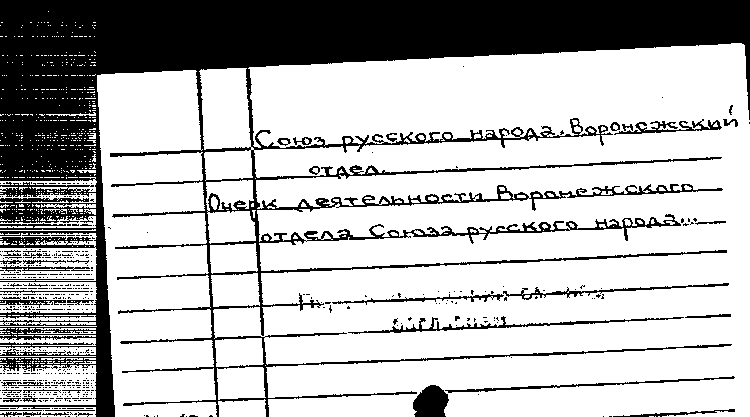 Союз русского народа. Воронежский
отдел.
Очерк деятельности Воронежского
отдела Союза русского народа...